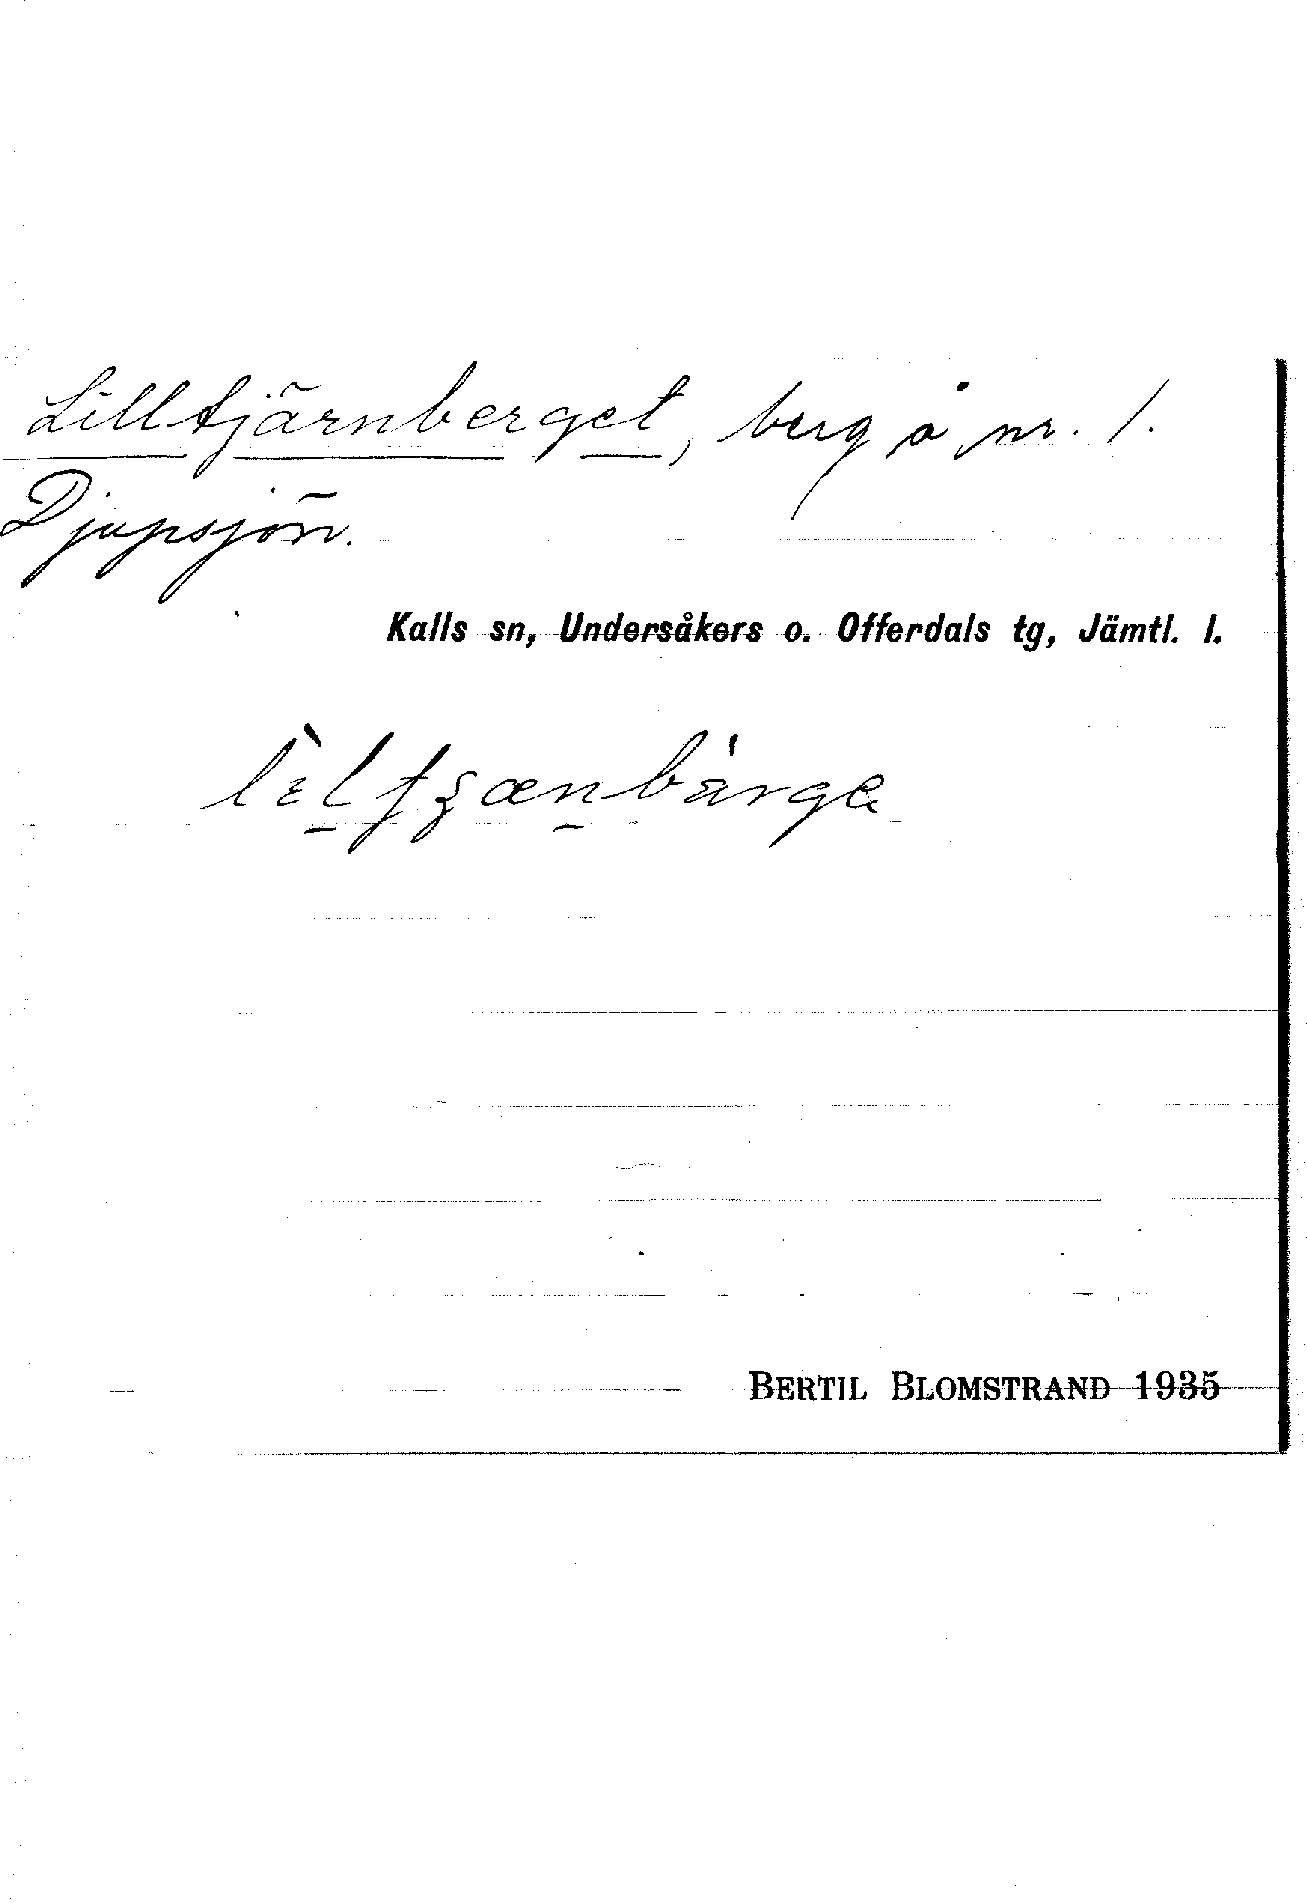 Lilltjärnberget, berg å nr. 1.
Djupsjön.
Kalls sn, Undersåkers o. Offerdals tg, Jämtl. l.
BERTIL BLOMSTRAND 1935